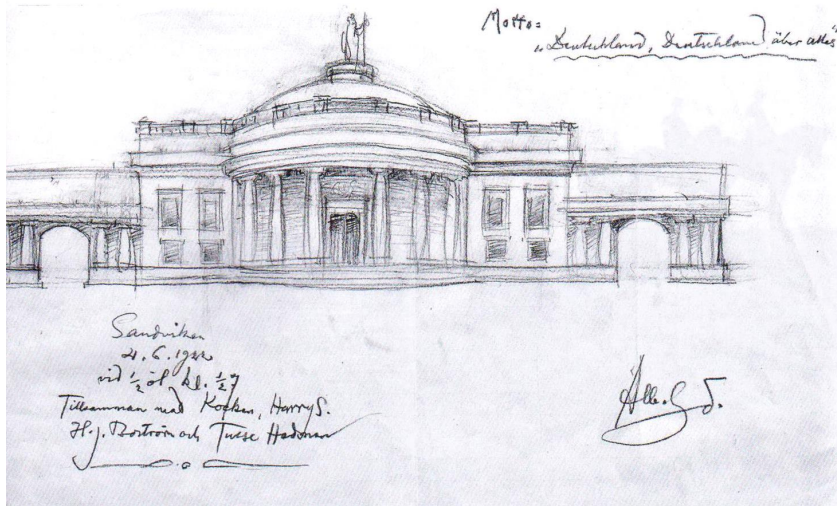 Motto:
„Deutschland, Deutschland über alles"
Sandviken
21.6.1922
vid ½ öl kl. ½7
Tillsamman med Kocken, Harry S.
H.J. Boström och Tusse Hedman